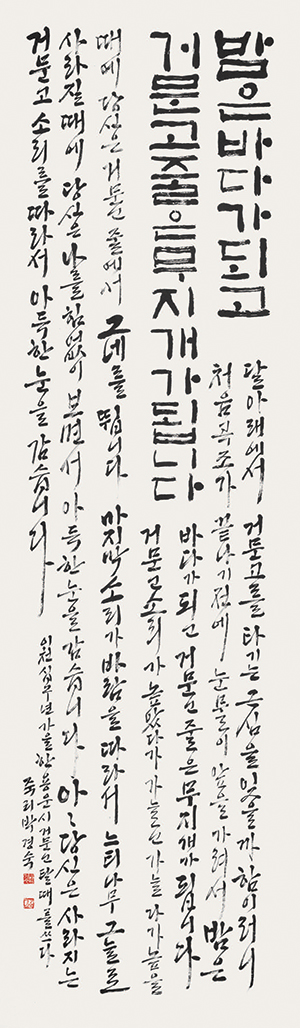 밤은바다가되고
거문고줄은무지개가됩니다
달 아래에서 거문고를 타기는 근심을 잊을까 함이러니
처음 곡조가 끝나기 전에 눈물이 앞을 가려서 밤은
바다가 되고 거문고 줄은 무지개가 됩니다
거문고 소리가 높았다가 가늘고 가늘다가 높을
때에 당신은 거문고 줄에서 그네를 뜁니다 마지막 소리가 바람을 따라서 느티나무 그늘로
사라질 때에 당신은 나를 힘없이 보면서 아득한 눈을 감습니다 아아 당신은 사라지는
거문고 소리를 따라서 아득한 눈을 감습니다
이천십구년가을 한용운시 거문고 탈 때를 쓰다
죽리 박경숙